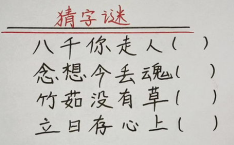 猜字谜
八千你走人( )
念想今丢魂( )
竹茹没有草( )
立日存心上( )